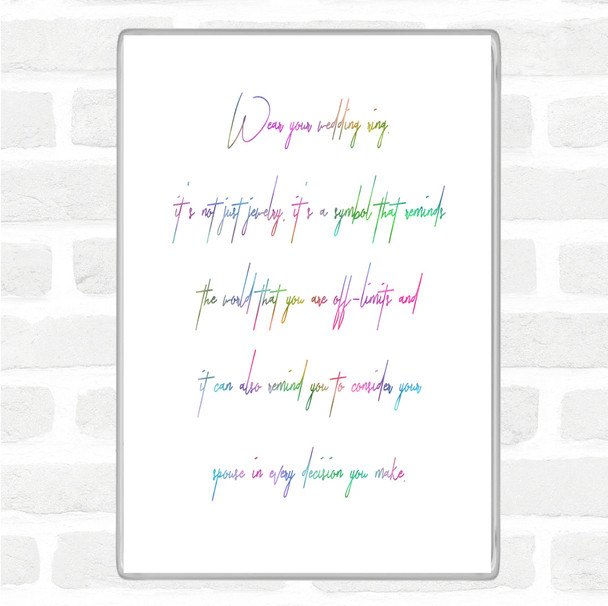 Wear your wedding ring.
it's not just jewelry, it's a symbol that reminds
the world that you are off-limits and
it can also remind you to consider your
spouse in every decision you make.